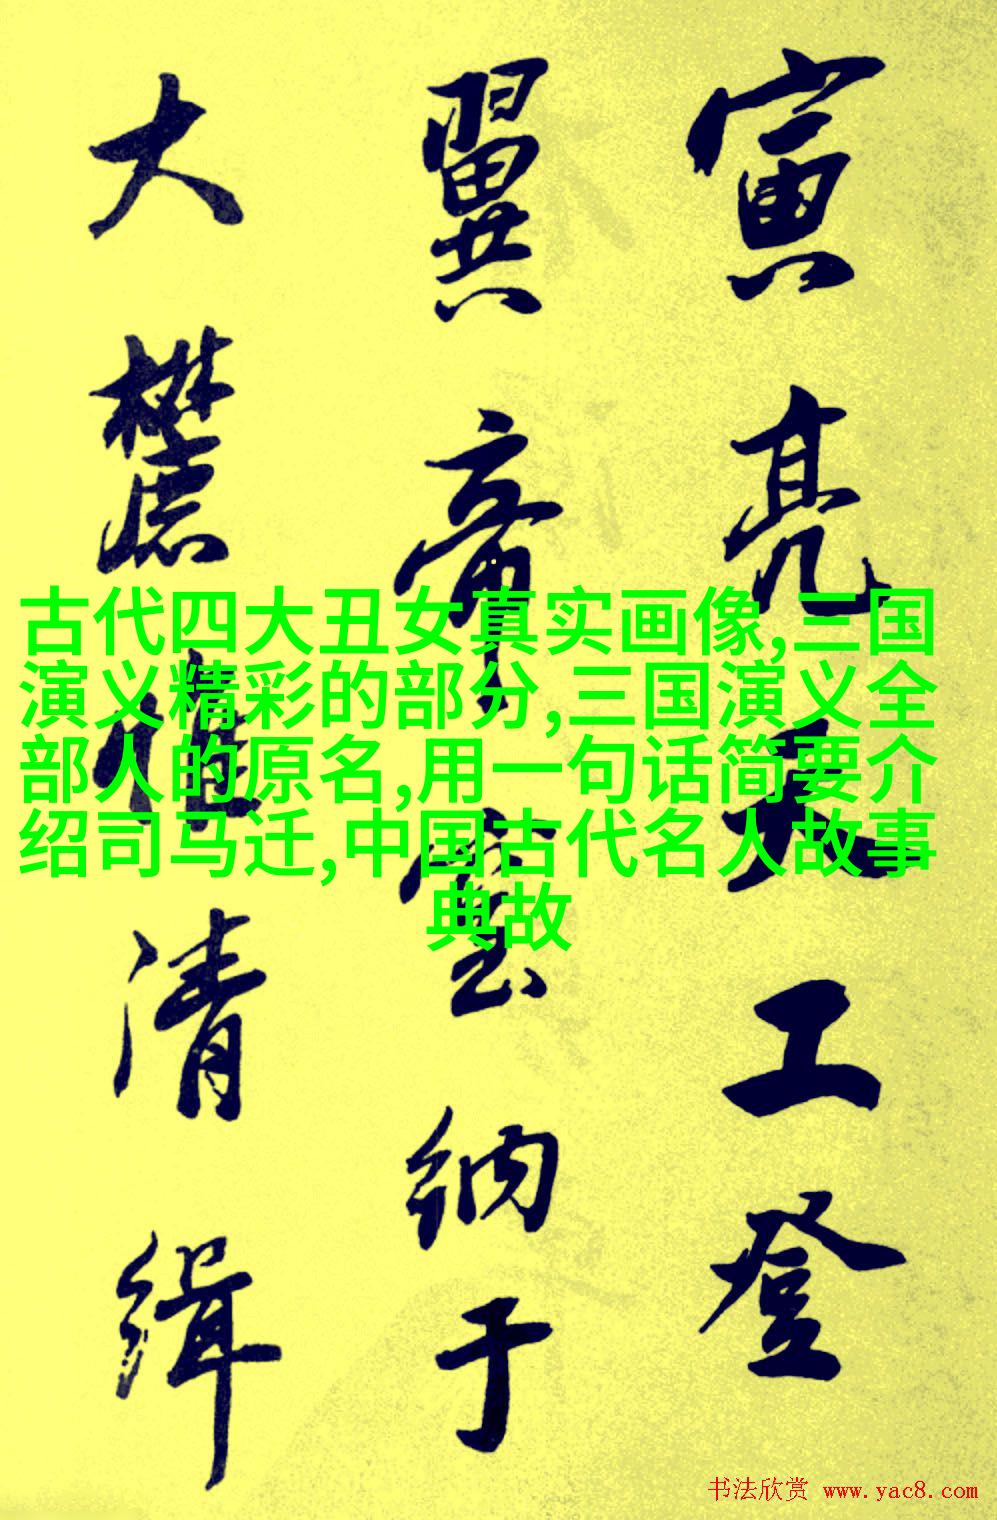 寅亮天工登
翼帝室納于
大麓惟清緝
古代四大丑女真实画像,三国
演义精彩的部分,三国演义全
部人的原名,用一句话简要介
绍司马迁,中国古代名人故事
典故
书法欣赏 www.yac8.com